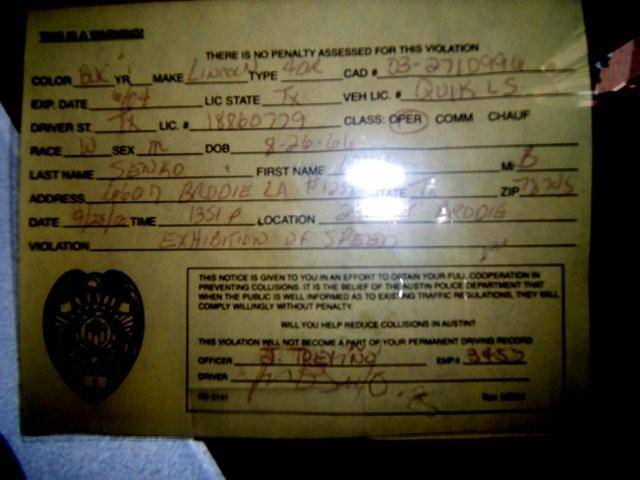 THIS IS A WARNING!
THERE IS NO PENALTY ASSESSED FOR THIS VIOLATION
COLOR BLK YR MAKE LINCOLN TYPE 4DR CAD # 03-2710996
EXP. DATE 6/04 LIC STATE TX VEH LIC. # QUIK LS
DRIVER ST. TX LIC. # 18860779 CLASS: OPER COMM CHAUF
RACE W SEX M DOB 8-26-66
LAST NAME SENKO FIRST NAME MI B
ADDRESS 6607 BRODIE LA STATE TX ZIP
DATE TIME 1351 P LOCATION BRODIE
VIOLATION EXHIBITION OF SPEED
THIS NOTICE IS GIVEN TO YOU IN AN EFFORT TO OBTAIN YOUR FULL COOPERATION IN
PREVENTING COLLISIONS. IT IS THE BELIEF OF THE AUSTIN POLICE DEPARTMENT THAT
WHEN THE PUBLIC IS WELL INFORMED AS TO EXISTING TRAFFIC REGULATIONS, THEY WILL
COMPLY WILLINGLY WITHOUT PENALTY.
WILL YOU HELP REDUCE COLLISIONS IN AUSTIN?
THIS VIOLATION WILL NOT BECOME A PART OF YOUR PERMANENT DRIVING RECORD
OFFICER J. TREVINO EMP# 3457
DRIVER